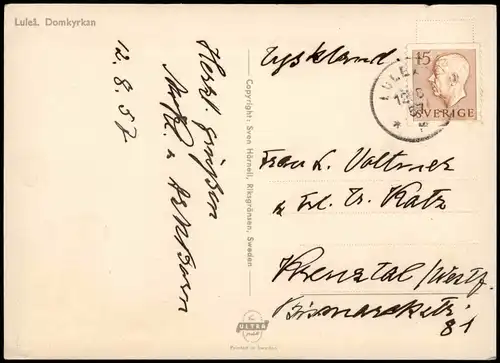 Luleå. Domkyrkan
12.8.57
Herzl. Grüßen
Copyright: Sven Hörnell, Riksgränsen, Sweden
ULTRA
Printed in Sweden
Tyskland
15
SVERIGE
LULEÅ
Frau L. Voltmer
u. Frl. Tr. Katz
Kreuztal/Westf.
Bismarckstr.
81